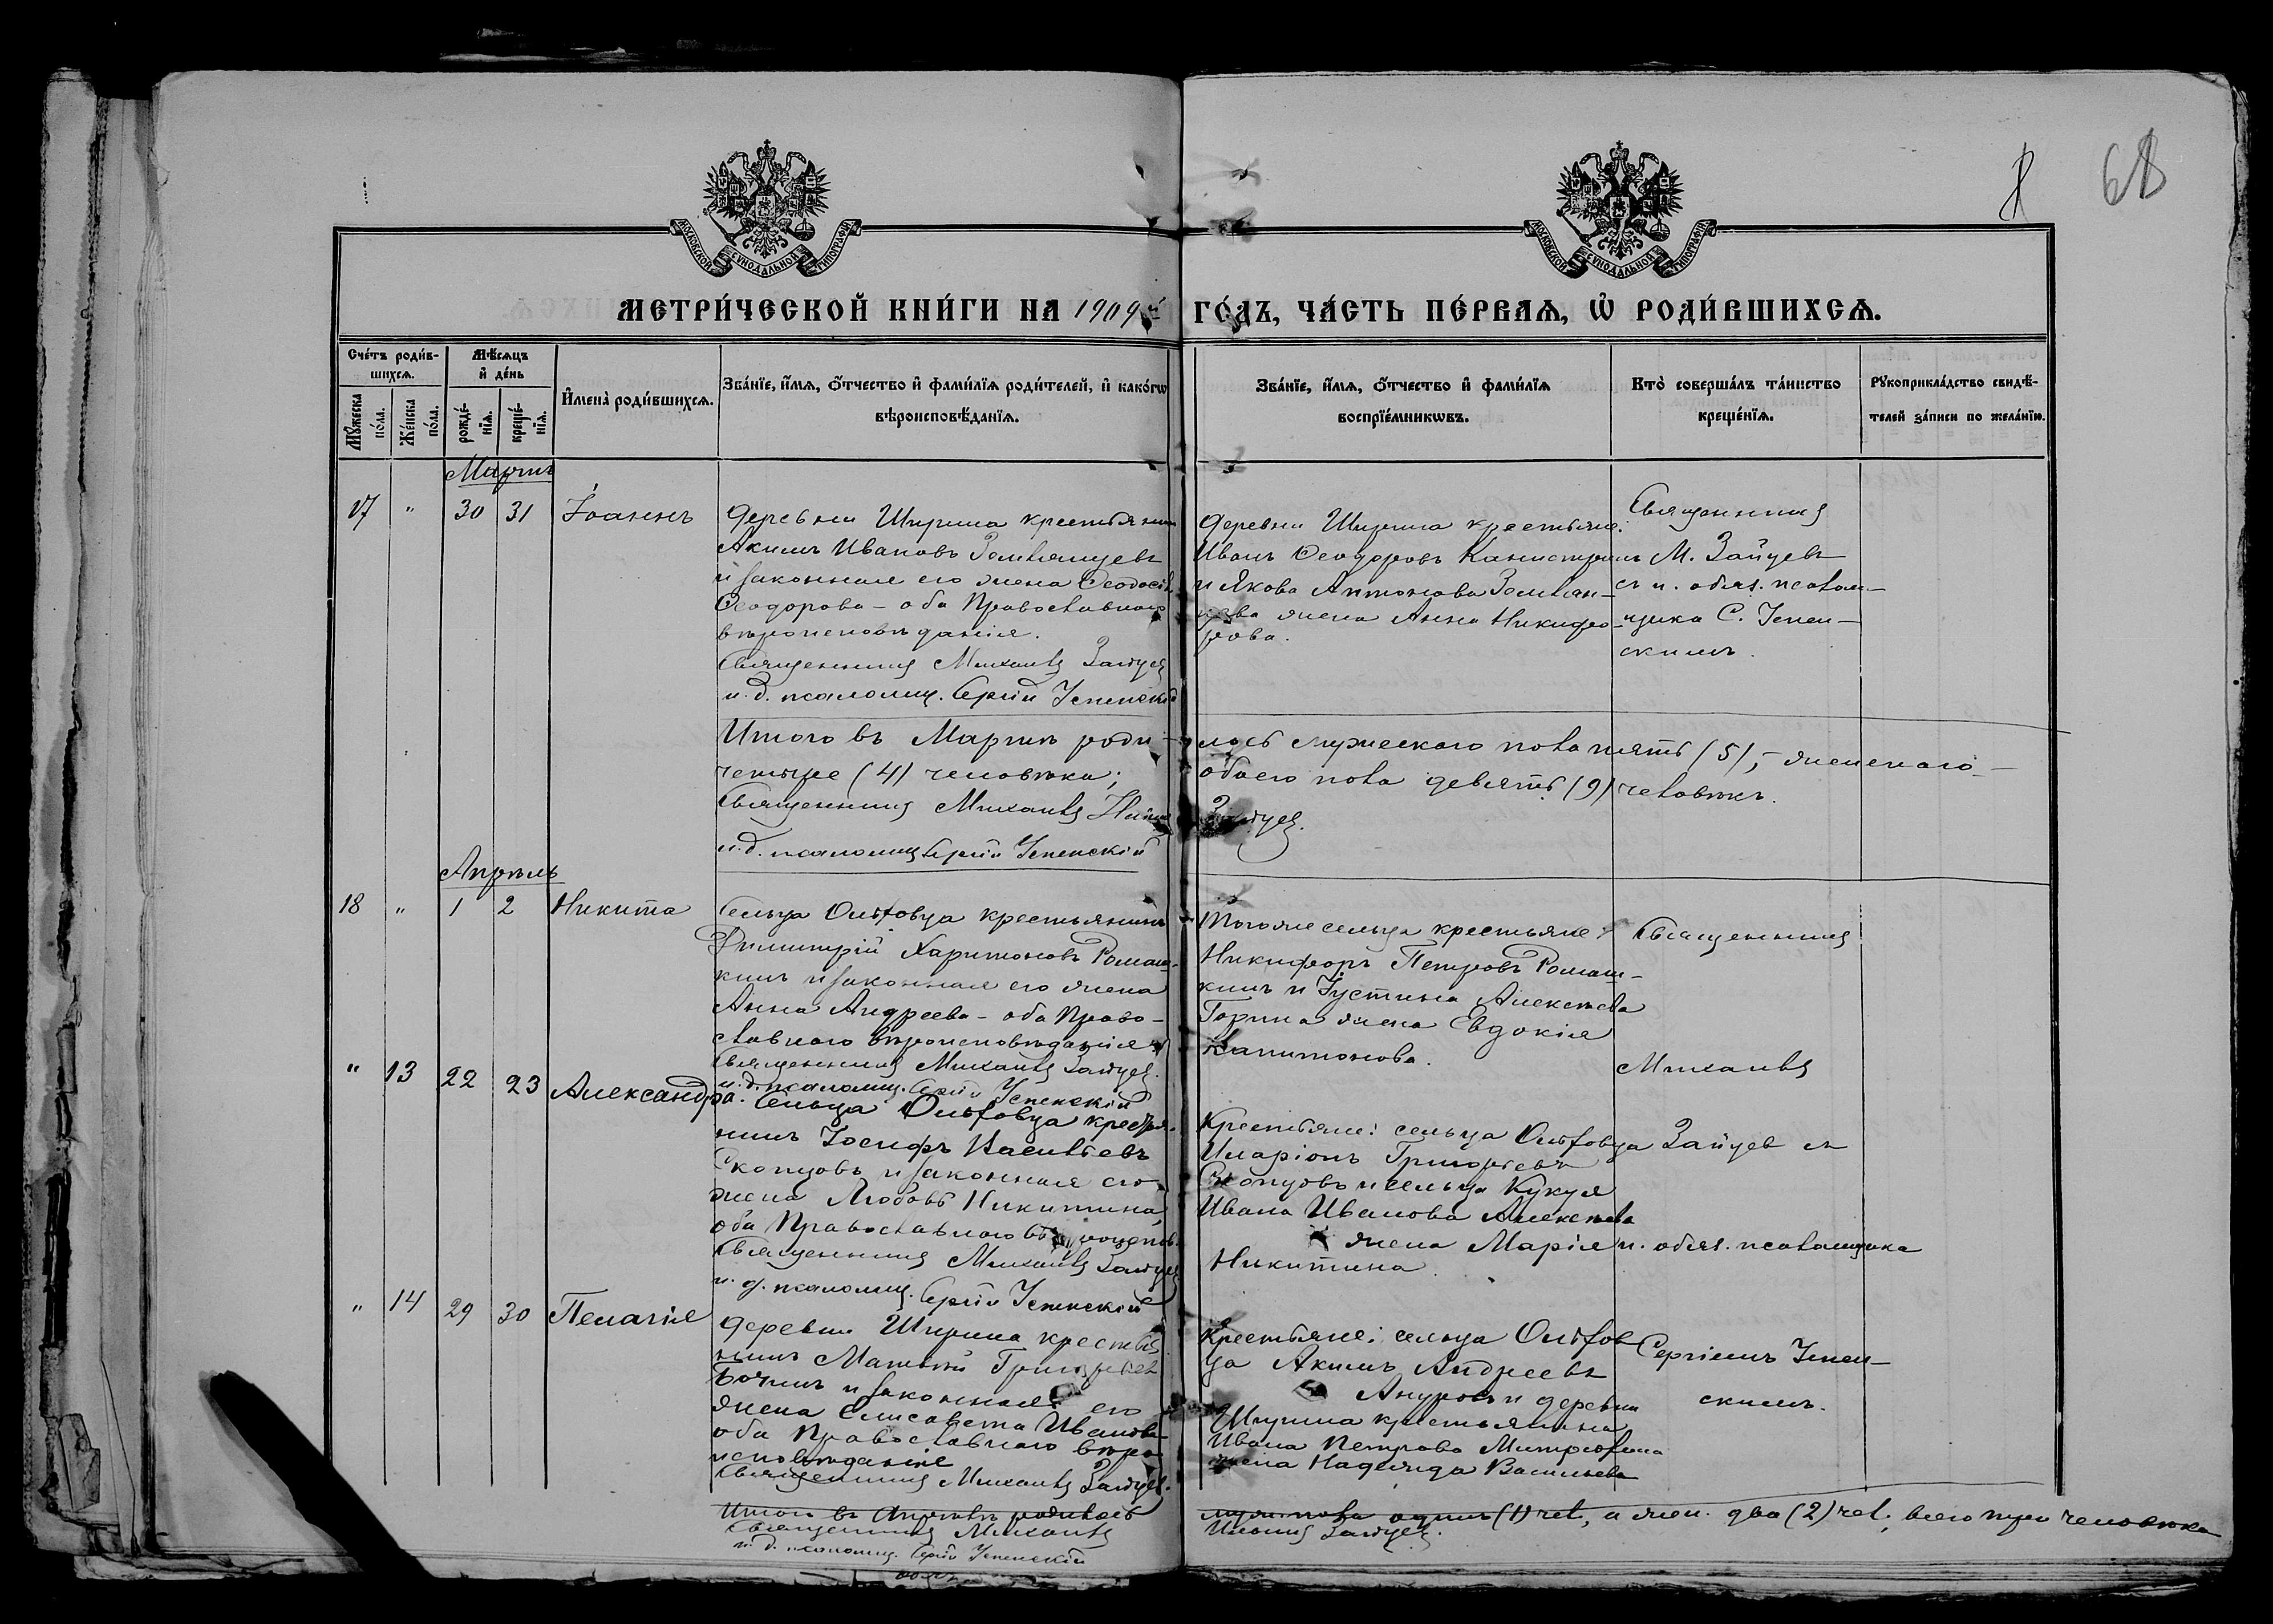 68
МОСКОВСКОЙ СѴНОДАЛЬНОЙ ТИПОГРАФІИ
МОСКОВСКОЙ СѴНОДАЛЬНОЙ ТИПОГРАФІИ
МЕТРИ́ЧЕСКОЙ КНИ́ГИ НА 1909й ГО́ДЪ, ЧА́СТЬ ПЕ́РВАѦ, Ѡ҆ РОДИ́ВШИХСѦ.
Сче́тъ роди́в-
шихсѧ.
Мꙋ́жеска по́ла.
Же́нска по́ла.
Мѣ́сѧцъ
и҆ де́нь
рожде́-
нїѧ.
креще́-
нїѧ.
И҆мена̀ роди́вшихсѧ.
Зва́нїе, и҆́мѧ, ѻ҆́тчество и҆ фами́лїѧ роди́телей, и҆ како́гѡ
вѣроисповѣ́данїѧ.
Зва́нїе, и҆́мѧ, ѻ҆́тчество и҆ фами́лїѧ
воспрїе́мникѡвъ.
Кто̀ соверша́лъ та́инство
креще́нїѧ.
Рꙋкоприкла́дство свидѣ́-
телей за́писи по жела́нїю.
Мартъ
17 " 30 31 Іоаннъ
Деревни Ширина крестьянинъ
Акимъ Ивановъ Землянцевъ
и законная его жена Ѳеодосія
Ѳеодорова - оба Православнаго
вѣроисповѣданія.
Священникъ Михаилъ Зайцевъ
и. д. псаломщ. Сергій Успенскій
Деревни Ширина крестьяне:
Иванъ Ѳеодоровъ
и Якова Антонова Землян-
цева жена Анна Никифо-
рова.
Священникъ
М. Зайцевъ
съ и. обяз. псалом-
щика С. Успен-
скимъ.
Итого въ Мартѣ роди-лось мужескаго пола пять (5), - женскаго -
четыре (4) человѣка; обоего пола девять (9) человѣкъ.
Священникъ Михаилъ Зайцевъ.
и. д. псаломщ Сергій Успенскій
Апрѣль
18 " 1 2 Никита
Сельца Ольховца крестьянинъ
Димитрій Харитоновъ Ромаш-
кинъ и законная его жена
Анна Андреева - оба Право-
славнаго вѣроисповѣданія
Священникъ Михаилъ Зайцев.
и. д. псаломщ. Сергій Успенскій
Тогоже сельца крестьяне:
Никифоръ Петровъ Ромаш-
кинъ и Іустина Алексѣева
Горина жена Евдокія
Капитонова.
Священникъ
Михаилъ
" 13 22 23 Александра.
Сельца Ольховца крестья-
нинъ Іосифъ Васильевъ
Скопцовъ и законная его
жена Любовь Никитина,
оба Православнаго вѣроиспов.
Священникъ Михаилъ Зайцев
и. д. псаломщ. Сергій Успенскій
Крестьяне: сельца Ольховца
Иларіонъ Григорьевъ
Скопцовъ и сельца Кукуя
Ивана Иванова Алексѣева
жена Марія
Никитина
Зайцевъ съ
и. обяз. псаломщика
" 14 29 30 Пелагія
Деревни Ширина крестья-
нинъ Матѳей Григорьев
и законная его
жена Елисавета Иванова
оба Православнаго вѣро-
исповѣданія
Священникъ Михаилъ Зайцев.
Крестьяне: сельца Ольхов-
ца Акимъ Андреевъ
Ануровъ и деревни
Ширина крестьянина
Ивана Петрова Митрофана
жена Надежда Васильева
Сергіемъ Успен-
скимъ.
Итого въ Апрѣлѣ родилось муж. пола одинъ (1) чел., а жен. два (2) чел., всего три человѣка
Священникъ Михаилъ Зайцев.
и. д. псаломщ. Сергій Успенскій